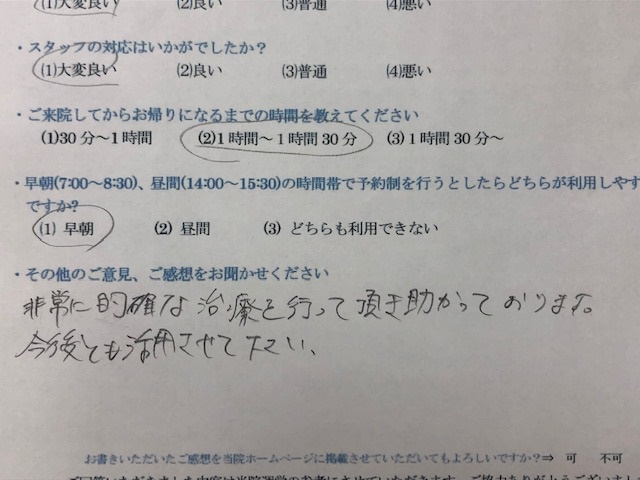 (1)大変良い (2)良い (3)普通 (4)悪い
・スタッフの対応はいかがでしたか?
(1)大変良い (2)良い (3)普通 (4)悪い
・ご来院してからお帰りになるまでの時間を教えてください
(1)30分～1時間 (2)1時間～1時間30分 (3)1時間30分～
・早朝(7:00～8:30)、昼間(14:00～15:30)の時間帯で予約制を行うとしたらどちらが利用しやす
ですか?
(1) 早朝 (2) 昼間 (3) どちらも利用できない
・その他のご意見、ご感想をお聞かせください
非常に的確な治療を行って頂き助かっております。
今後とも活用させて下さい、
お書きいただいたご感想を当院ホームページに掲載させていただいてもよろしいですか?⇒ 可 不可